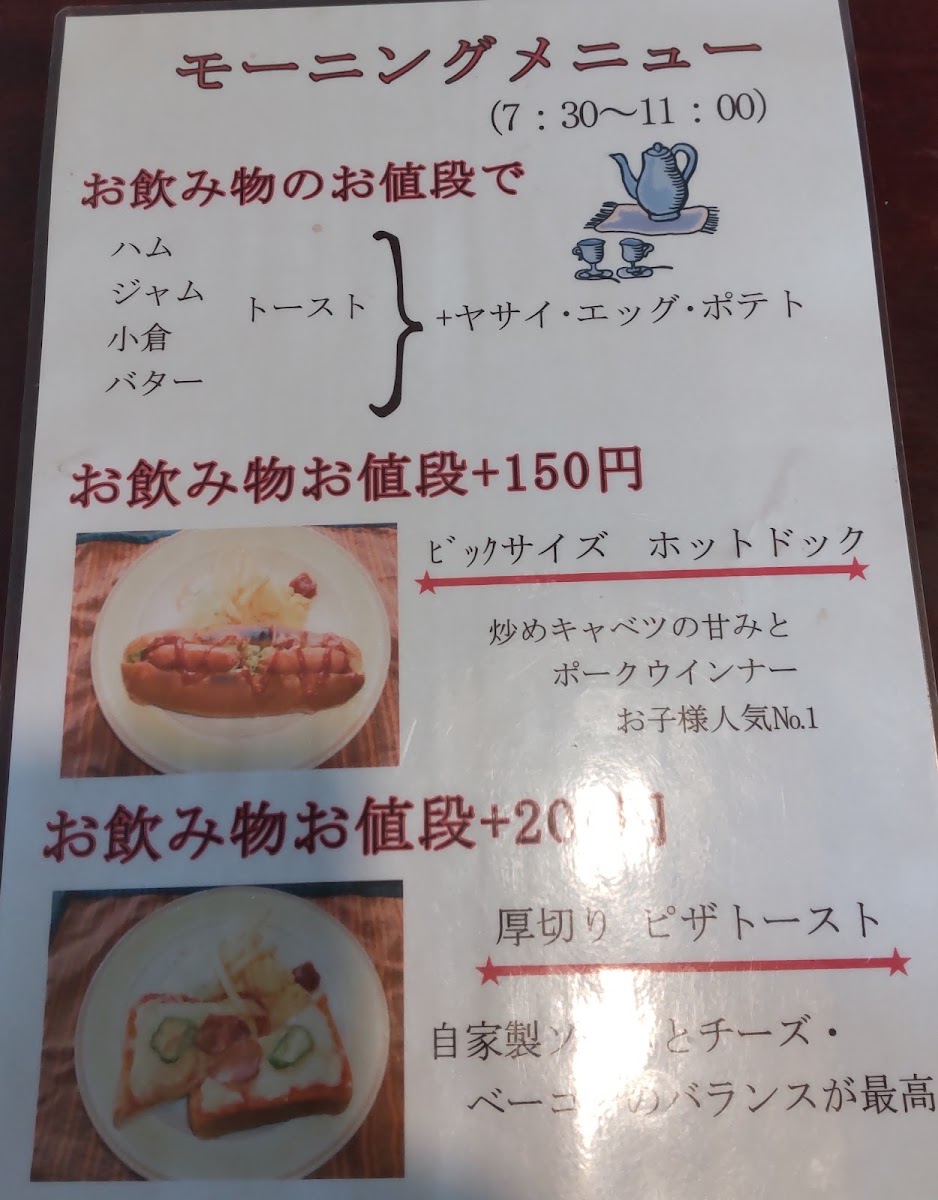 モーニングメニュー
(7：30～11：00)
お飲み物のお値段で
ハム
ジャム
小倉
バター
トースト
+ヤサイ・エッグ・ポテト
お飲み物お値段+150円
ﾋﾞｯｸサイズ　ホットドック
炒めキャベツの甘みと
ポークウインナー
お子様人気№1
お飲み物お値段+20円
厚切り ピザトースト
自家製ソとチーズ・
ベーコンのバランスが最高